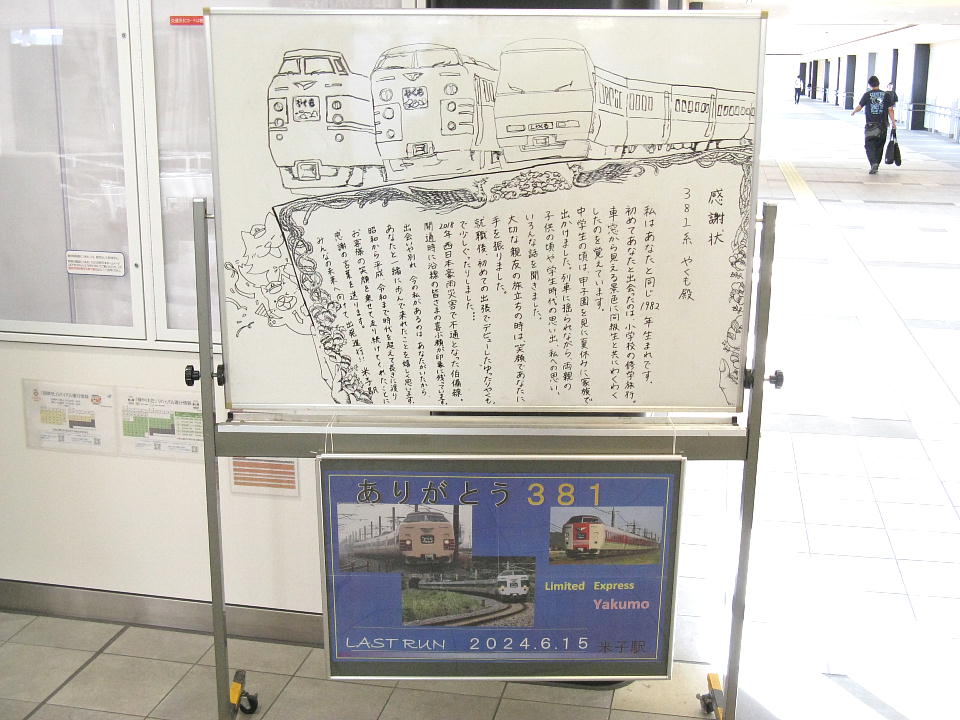 やくも
やくも
感謝状
381系 やくも殿
私はあなたと同じ1982年生まれです。
初めてあなたと出会ったのは、小学校の修学旅行。
車窓から見える景色に同級生と共にわくわく
したのを覚えています。
中学生の頃は、甲子園を見に夏休みに家族で
出かけました。列車に揺られながら、両親の
子供の頃や学生時代の思い出、私への思い…
いろんな話を聞きました。
大切な親友の旅立ちの時は、笑顔であなたに、
手を振りました。
就職後、初めての出張でデビューしたゆったりやくも。
2018年 西日本豪雨災害で不通となった伯備線。
開通時に沿線の皆さまの喜ぶ顔が印象に残っています。
出会いや別れ、今の私があるのは、あなたがいたから
あなたと一緒に歩んで来れたことを嬉しく思います。
昭和から平成、令和まで時代を超えて長きに渡り
お客様の笑顔を乗せて走り続けてくれたことに
感謝の言葉を送ります。
みんなの未来へ向けて、出発進行!! 米子駅
ありがとう381
Limited Express
Yakumo
LAST RUN 2024.6.15 米子駅